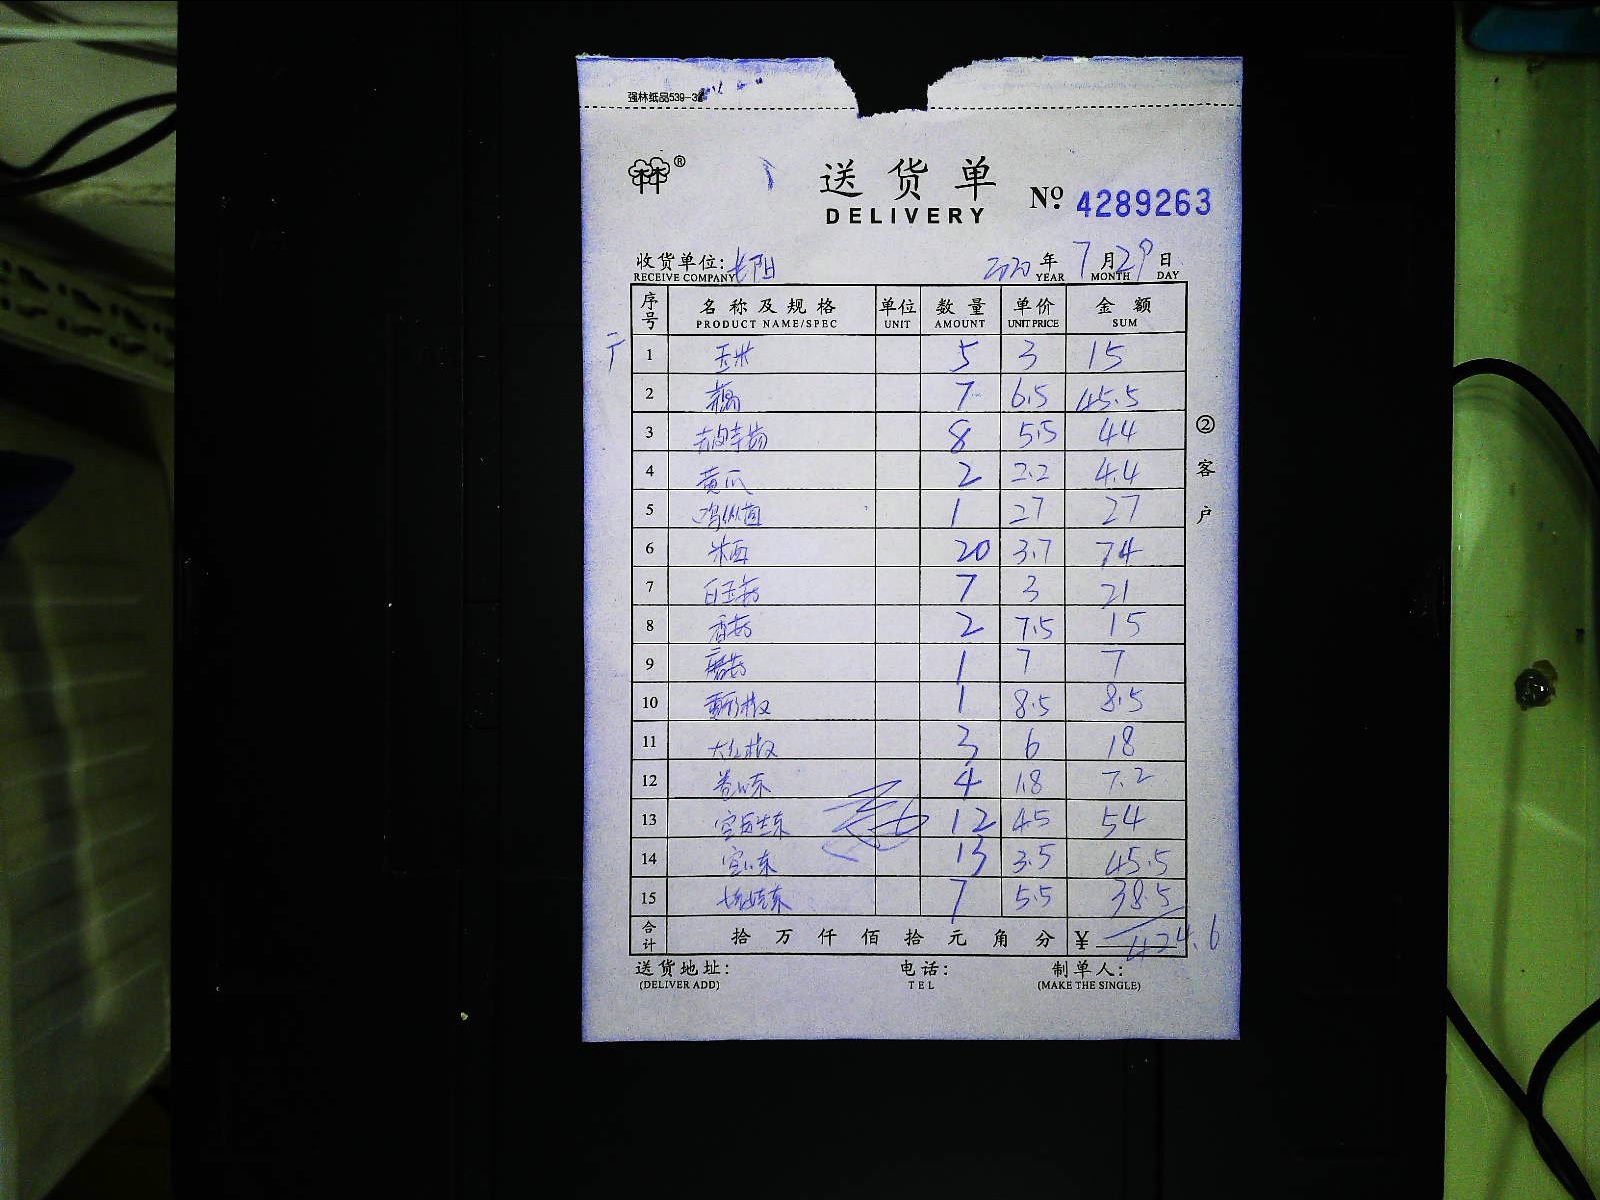 强林纸品539-3
林®
送货单
DELIVERY
№ 4289263
收货单位: 长阳 2020 年 7 月 29 日
RECEIVE COMPANY YEAR MONTH DAY
序号 名称及规格 单位 数量 单价 金额
PRODUCT NAME/SPEC UNIT AMOUNT UNIT PRICE SUM
1 玉米 5 3 15
2 藕 7 6.5 45.5
3 7 8 5.5 44
4 黄瓜 2 2.2 4.4
5 1 27 27
6 米面 20 3.7 74
7 白玉菇 7 3 21
8 香菇 2 7.5 15
9 蘑菇 1 7 7
10 1 8.5 8.5
11 大红椒 3 6 18
12 4 1.8 7.2
13 12 45 54
14 13 3.5 45.5
15 7 5.5 38.5
合计 拾 万 仟 佰 拾 元 角 分 ¥ 424.6
送货地址: 电话: 制单人:
(DELIVER ADD) TEL (MAKE THE SINGLE)
②客户